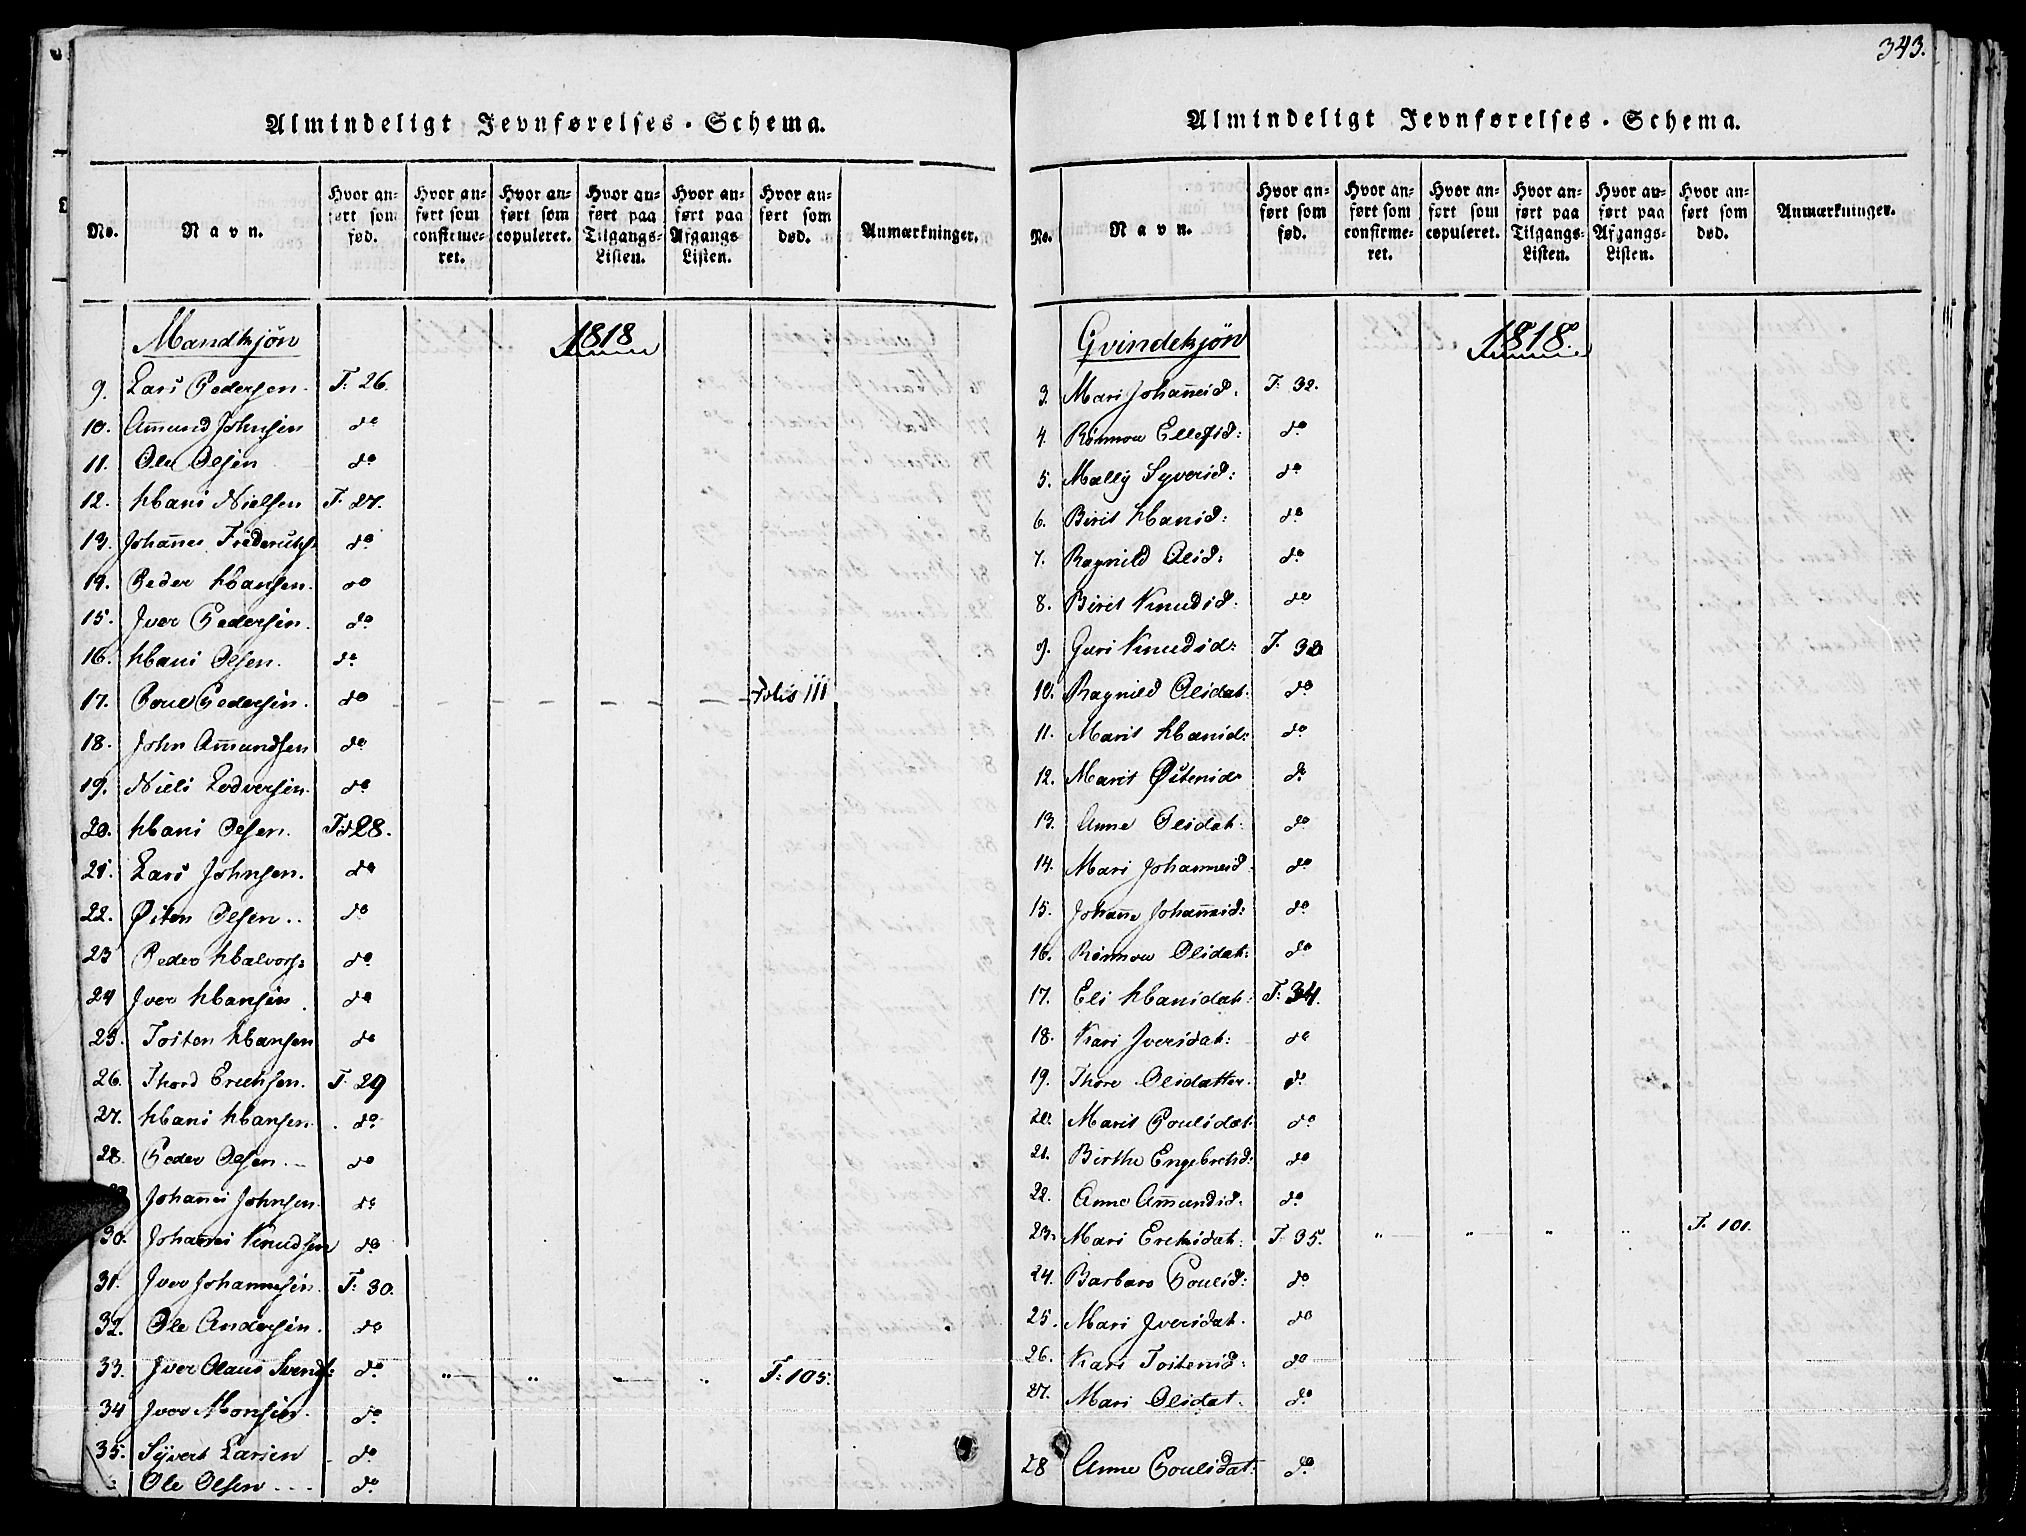 343.
Almindeligt Jevnførelses-Schema.
No. | Navn. | Hvor anført som fød. | Hvor anført som confirmeret. | Hvor anført som copuleret. | Hvor anført paa Tilgangs-Listen. | Hvor anført paa Afgangs Listen. | Hvor anført som død. | Anmærkninger.
Mandkjøn 1818
9. Lars Pedersen. T: 26.
10. Am̅und Johnsen do
11. Ole Olsen do
12. Hans Nielsen T. 27.
13. Johan̅es do
14. Peder Hansen. do
15. Iver Pedersen. do
16. Hans Olsen. do
17. Poul Pedersen. do - - - - - Folis 111
18. John Am̅undsen do
19. Niels Lodversen. do
20. Hans Olsen. T: 28.
21. Lars Johnsen. do
22. Østen Olsen.. do
23 Peder Halvors: do
24 Iver Hansen. do
25. Tosten Hansen do
26. Thord Ericksen. T. 29
27. Hans Hansen. do
28. Peder Olsen. do
Johan̅es Johnsen. do
30. Johan̅es Knudsen do
31. Iver Johannesen. T: 30.
32. Ole Andersen. do
33. Iver Olaus Svends: do " " - " T: 105.
34 Iver Monsen. do
35. Syvert Larsen do
Ole Olsen do
Almindeligt Jevnførelses-Schema.
No. | Navn. | Hvor anført som fød. | Hvor anført som confirmeret. | Hvor anført som copuleret. | Hvor anført paa Tilgangs-Listen. | Hvor anført paa Afgangs-Listen. | Hvor anført som død. | Anmærkninger.
Qvindekjøn 1818.
3. Mari Johan̅esd. T: 32.
4. Rønnou Ellefsd: do
5. Mally Syversd: do
6. Birit Hansd: do
7. Ragnild Olsd: do
8. Birit Knudsd: do
9. Guri Knudsd: T. 33
10. Ragnild Olsdat: do
11. Marit Hansd: do
12. Marit Østensd: do
13. Anne Olsdat: do
14. Mari Johannesd: do
15. Johan̅e Johan̅esd: do
16. Rønnou Olsdat: do
17. Eli Hansdat: T: 34.
18. Kari Iversdat: do
19. Thore Olsdatter. do
20. Marit Poulsdat: do
21. Birthe Engebretsd: do
22. Anne Am̅undsd. do
23. Mari Ericksdat: T. 35. " " " " T. 101.
24. Barbara Poulsd: do
25. Mari Iversdat. do
26. Kari Tostensd: do
27. Mari Olsdat. do
28 Anne Poulsdat: do